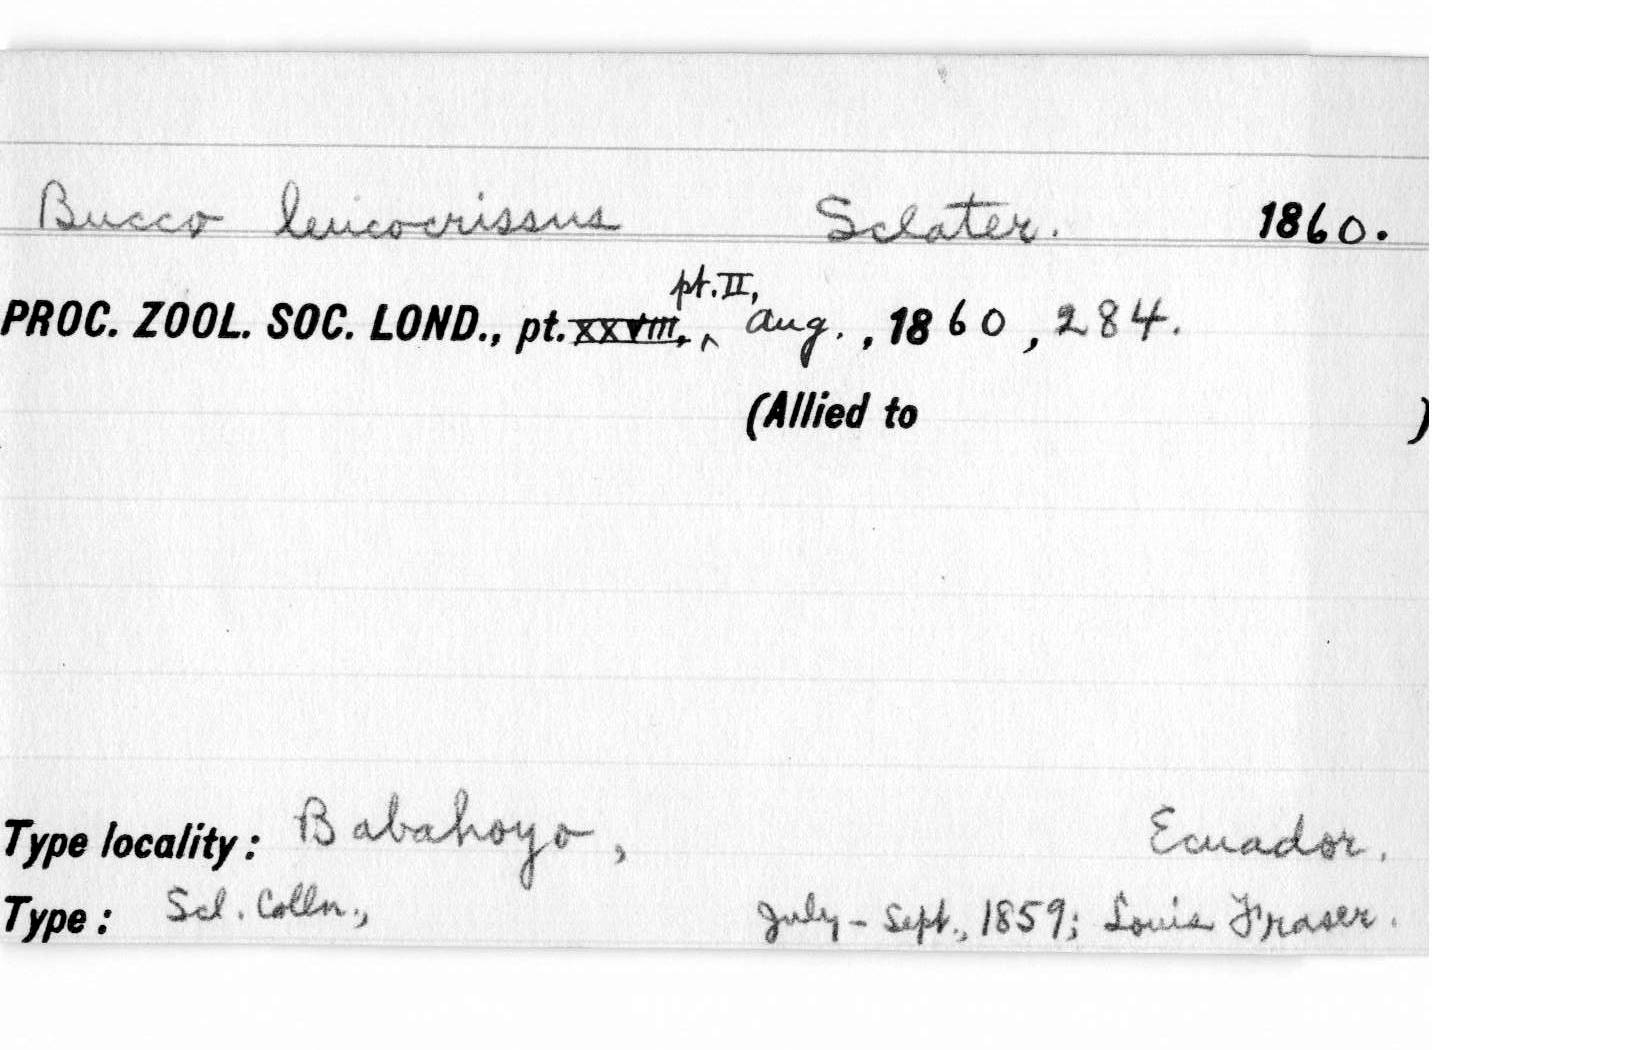 Bucco leucocrissus Sclater. 1860.
PROC. ZOOL. SOC. LOND., pt. xxviii, ^ pt. II, Aug., 1860, 284.
(Allied to )
Type locality: Babahoyo, Ecuador.
Type: Scl. Colln., July - Sept., 1859; Louis Fraser.